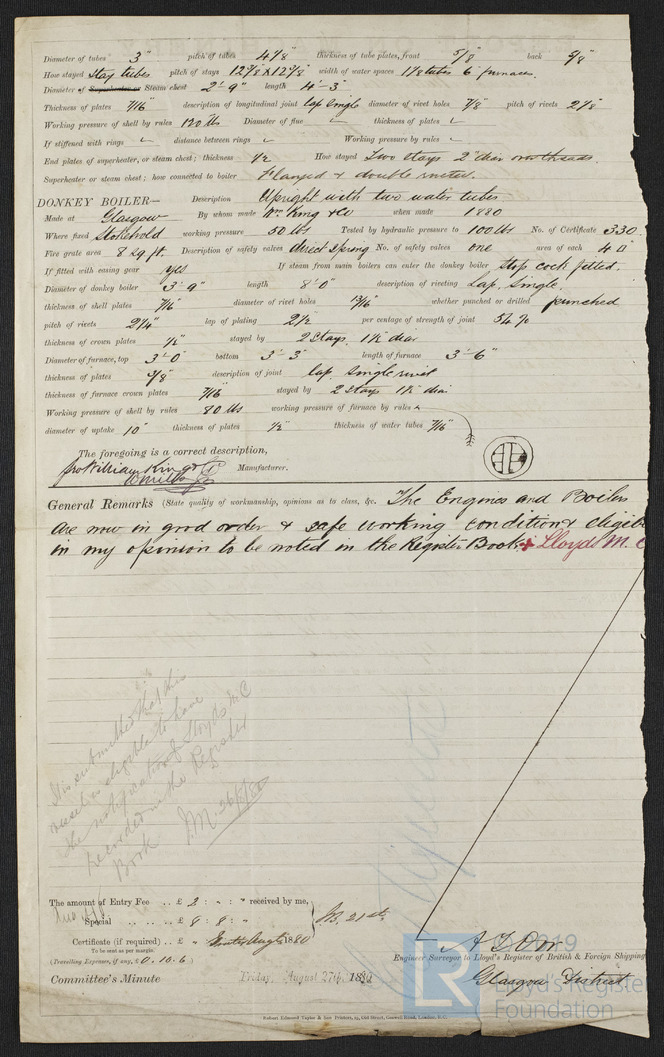 Diameter of tubes 3" pitch of tubes 4 1/8 thickness of tube plates, front 5/8 back 5/8
How stayed Stay tubes pitch of stays 12 3/8 x 12 3/8 width of water spaces 1 1/8 tubes 6" furnaces.
Diameter of Superheater or Steam chest 2'-9" length 4'-3"
Thickness of plates 7/16 description of longitudinal joint Lap Single diameter of rivet holes 7/8 pitch of rivets 2 1/8
Working pressure of shell by rules 120 lbs Diameter of flue thickness of plates
If stiffened with rings distance between rings Working pressure by rules
End plates of superheater, or steam chest; thickness 1/2 How stayed Two stays 2" diar over threads.
Superheater or steam chest; how connected to boiler Flanged & double riveted.
DONKEY BOILER— Description Upright with two water tubes
Made at Glasgow By whom made Wm King & Co when made 1880
Where fixed Stokehold working pressure 50 lbs Tested by hydraulic pressure to 100 lbs No. of Certificate 330
Fire grate area 8 sq ft. Description of safety valves direct spring No. of safety valves one area of each 4 □"
If fitted with easing gear yes If steam from main boilers can enter the donkey boiler stop cock fitted.
Diameter of donkey boiler 3'-9" length 8'-0" description of riveting Lap. Single.
thickness of shell plates 7/16 diameter of rivet holes 13/16 whether punched or drilled punched
pitch of rivets 2 1/4 lap of plating 2 1/2 per centage of strength of joint 54 %
thickness of crown plates 1/2 stayed by 2 Stays. 1 1/2 diar
Diameter of furnace, top 3'-0" bottom 3'-3" length of furnace 3'-6"
thickness of plates 3/8 description of joint lap. Single rivet
thickness of furnace crown plates 7/16 stayed by 2 Stays 1 1/2 diar
Working pressure of shell by rules 80 lbs working pressure of furnace by rules
diameter of uptake 10" thickness of plates 1/2 thickness of water tubes 7/16
The foregoing is a correct description,
pro William King & Co Manufacturer.
General Remarks (State quality of workmanship, opinions as to class, &c. The Engines and Boilers
are now in good order & safe working condition & eligib
in my opinion to be noted in the Register Book. + Lloyds M. C
It is submitted that this
vessel is eligible to have
the notification of Lloyds M.C
recorded in the Register
Book
The amount of Entry Fee .. £ 2 : " : " received by me,
Special .. .. £ 8 : 8 : "
Certificate (if required) .. £ " Augt 1880
To be sent as per margin.
(Travelling Expenses, if any, £ 0. 10. 6)
Engineer Surveyor to Lloyd's Register of British & Foreign Shipping
Glasgow District
Committee's Minute Friday, August 27th, 1880
Robert Edmund Taylor & Son Printers, 19, Old Street, Goswell Road, London, E.C.
©2019
LR
Lloyd's Register
Foundation